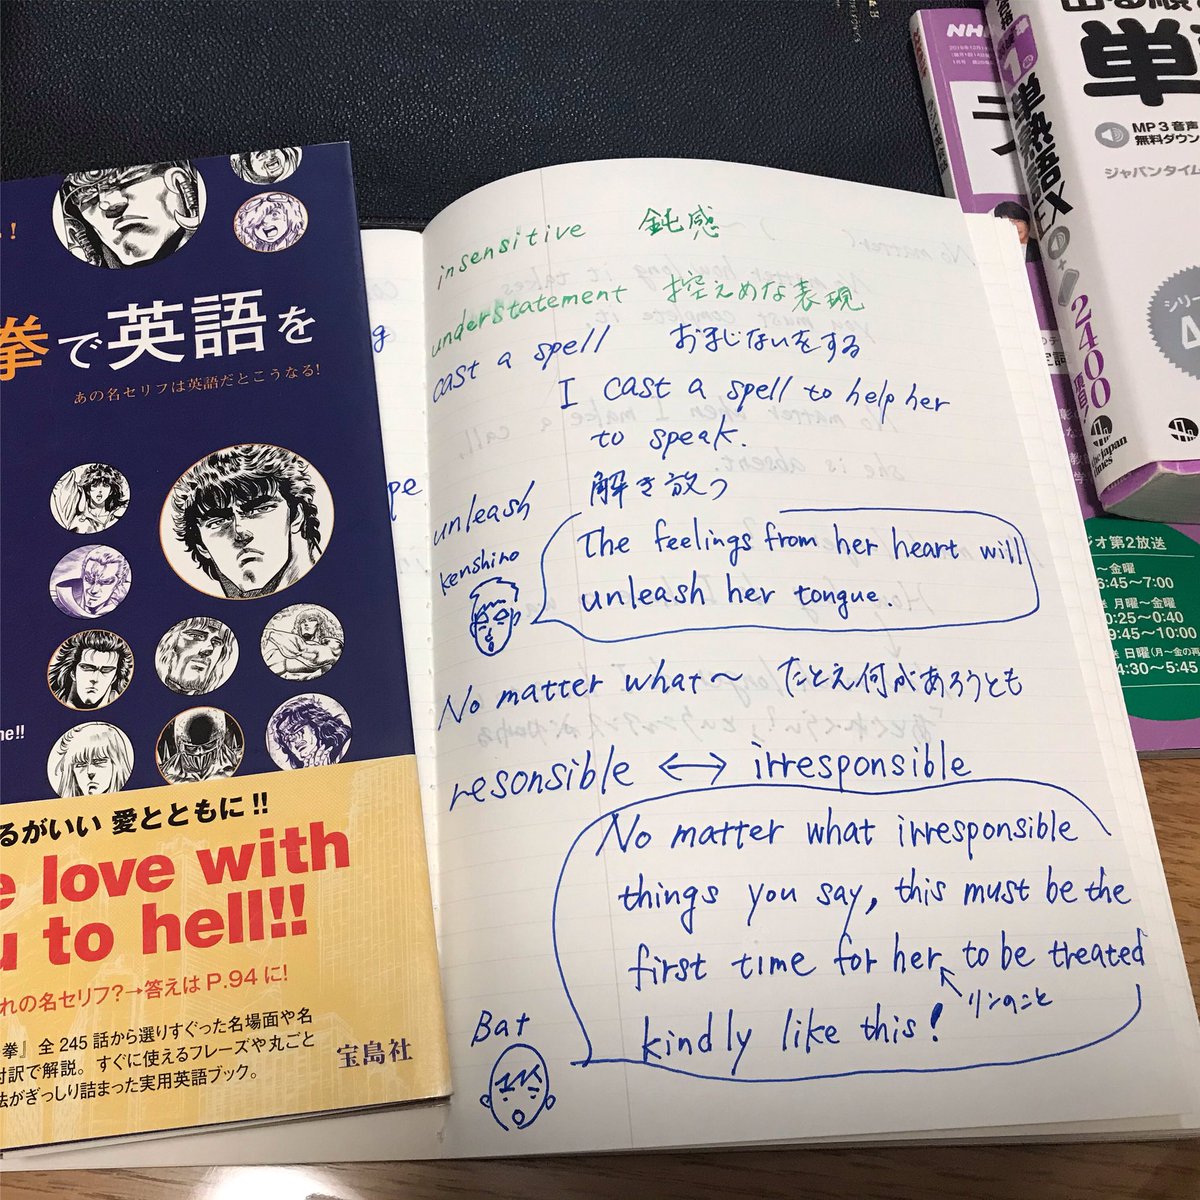 拳で英語を
あの名セリフは英語だとこうなる!
me!!
るがいい 愛とともに!!
e love with
u to hell!!
れの名セリフ?→答えはP.94に!
拳』全245話から選りすぐった名場面や名
対訳で解説。すぐに使えるフレーズや丸ごと
法がぎっしり詰まった実用英語ブック。
宝島社
insensitive 鈍感
understatement 控えめな表現
cast a spell おまじないをする
I cast a spell to help her
to speak.
unleash 解き放つ
kenshiro
The feelings from her heart will
unleash her tongue.
No matter what〜 たとえ何があろうとも
resonsible ↔ irresponsible
No matter what irresponsible
things you say, this must be the
first time for her to be treated
リンのこと
kindly like this!
Bat
NH
単
MP3音声
無料ダウン
ジャパンタイム
シリー
単熟語EX
2400
the japan times
ジオ第2放送
〜金曜
6:45〜7:00
月曜〜金曜
0:25〜0:40
9:45〜10:00
日曜(月〜金の再
4:30〜5:45